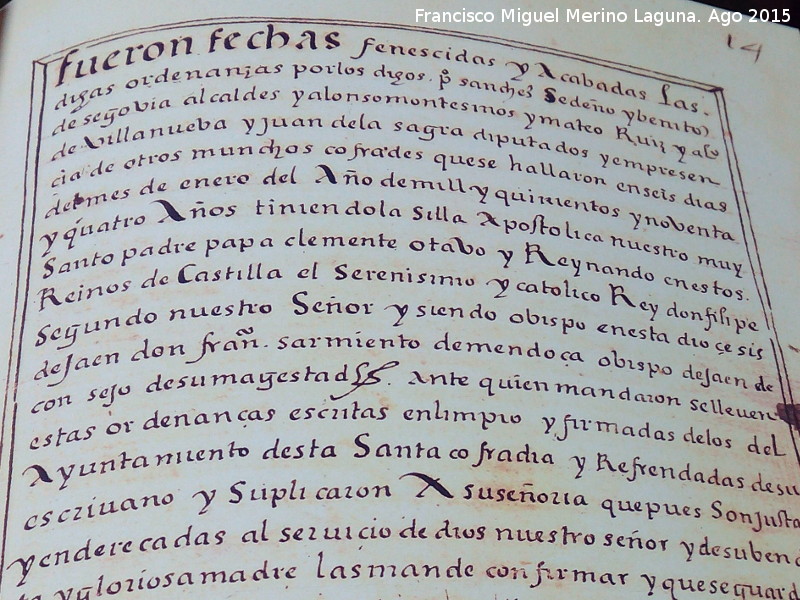 Francisco Miguel Merino Laguna. Ago 2015
14
fueron fechas fenescidas y Acabadas las.
digas ordenanzas porlos digos. pº sanches Sedeño ybenito
de segovia alcaldes yalonsomontesinos ymateo Ruiz yalº
de Villanueba yjuan dela sagra diputados yempresen
cia de otros munchos cofrades quese hallaron enseis dias
del mes de enero del Año demill yquinientos ynoventa
yquatro Años tiniendola Silla Apostolica nuestro muy
Santo padre papa clemente otabo y Reynando enestos.
Reinos de Castilla el Serenisimo ycatolico Rey donfilipe
Segundo nuestro Señor y siendo obispo enesta dioçesis
deJaen don franº. sarmiento demendoça obispo deJaen de
con sejo desumagestad. Ante quien mandaron selleven
estas ordenanças escritas enlimpio yfirmadas delos del
Ayuntamiento desta Santa cofradia y Refrendadas desu
escrivano y Suplicaron A suseñoria quepues Sonjusta
yenderecadas al servicio de dios nuestro señor ydesuben
ta ygloriosamadre lasmande confirmar yqueseguard